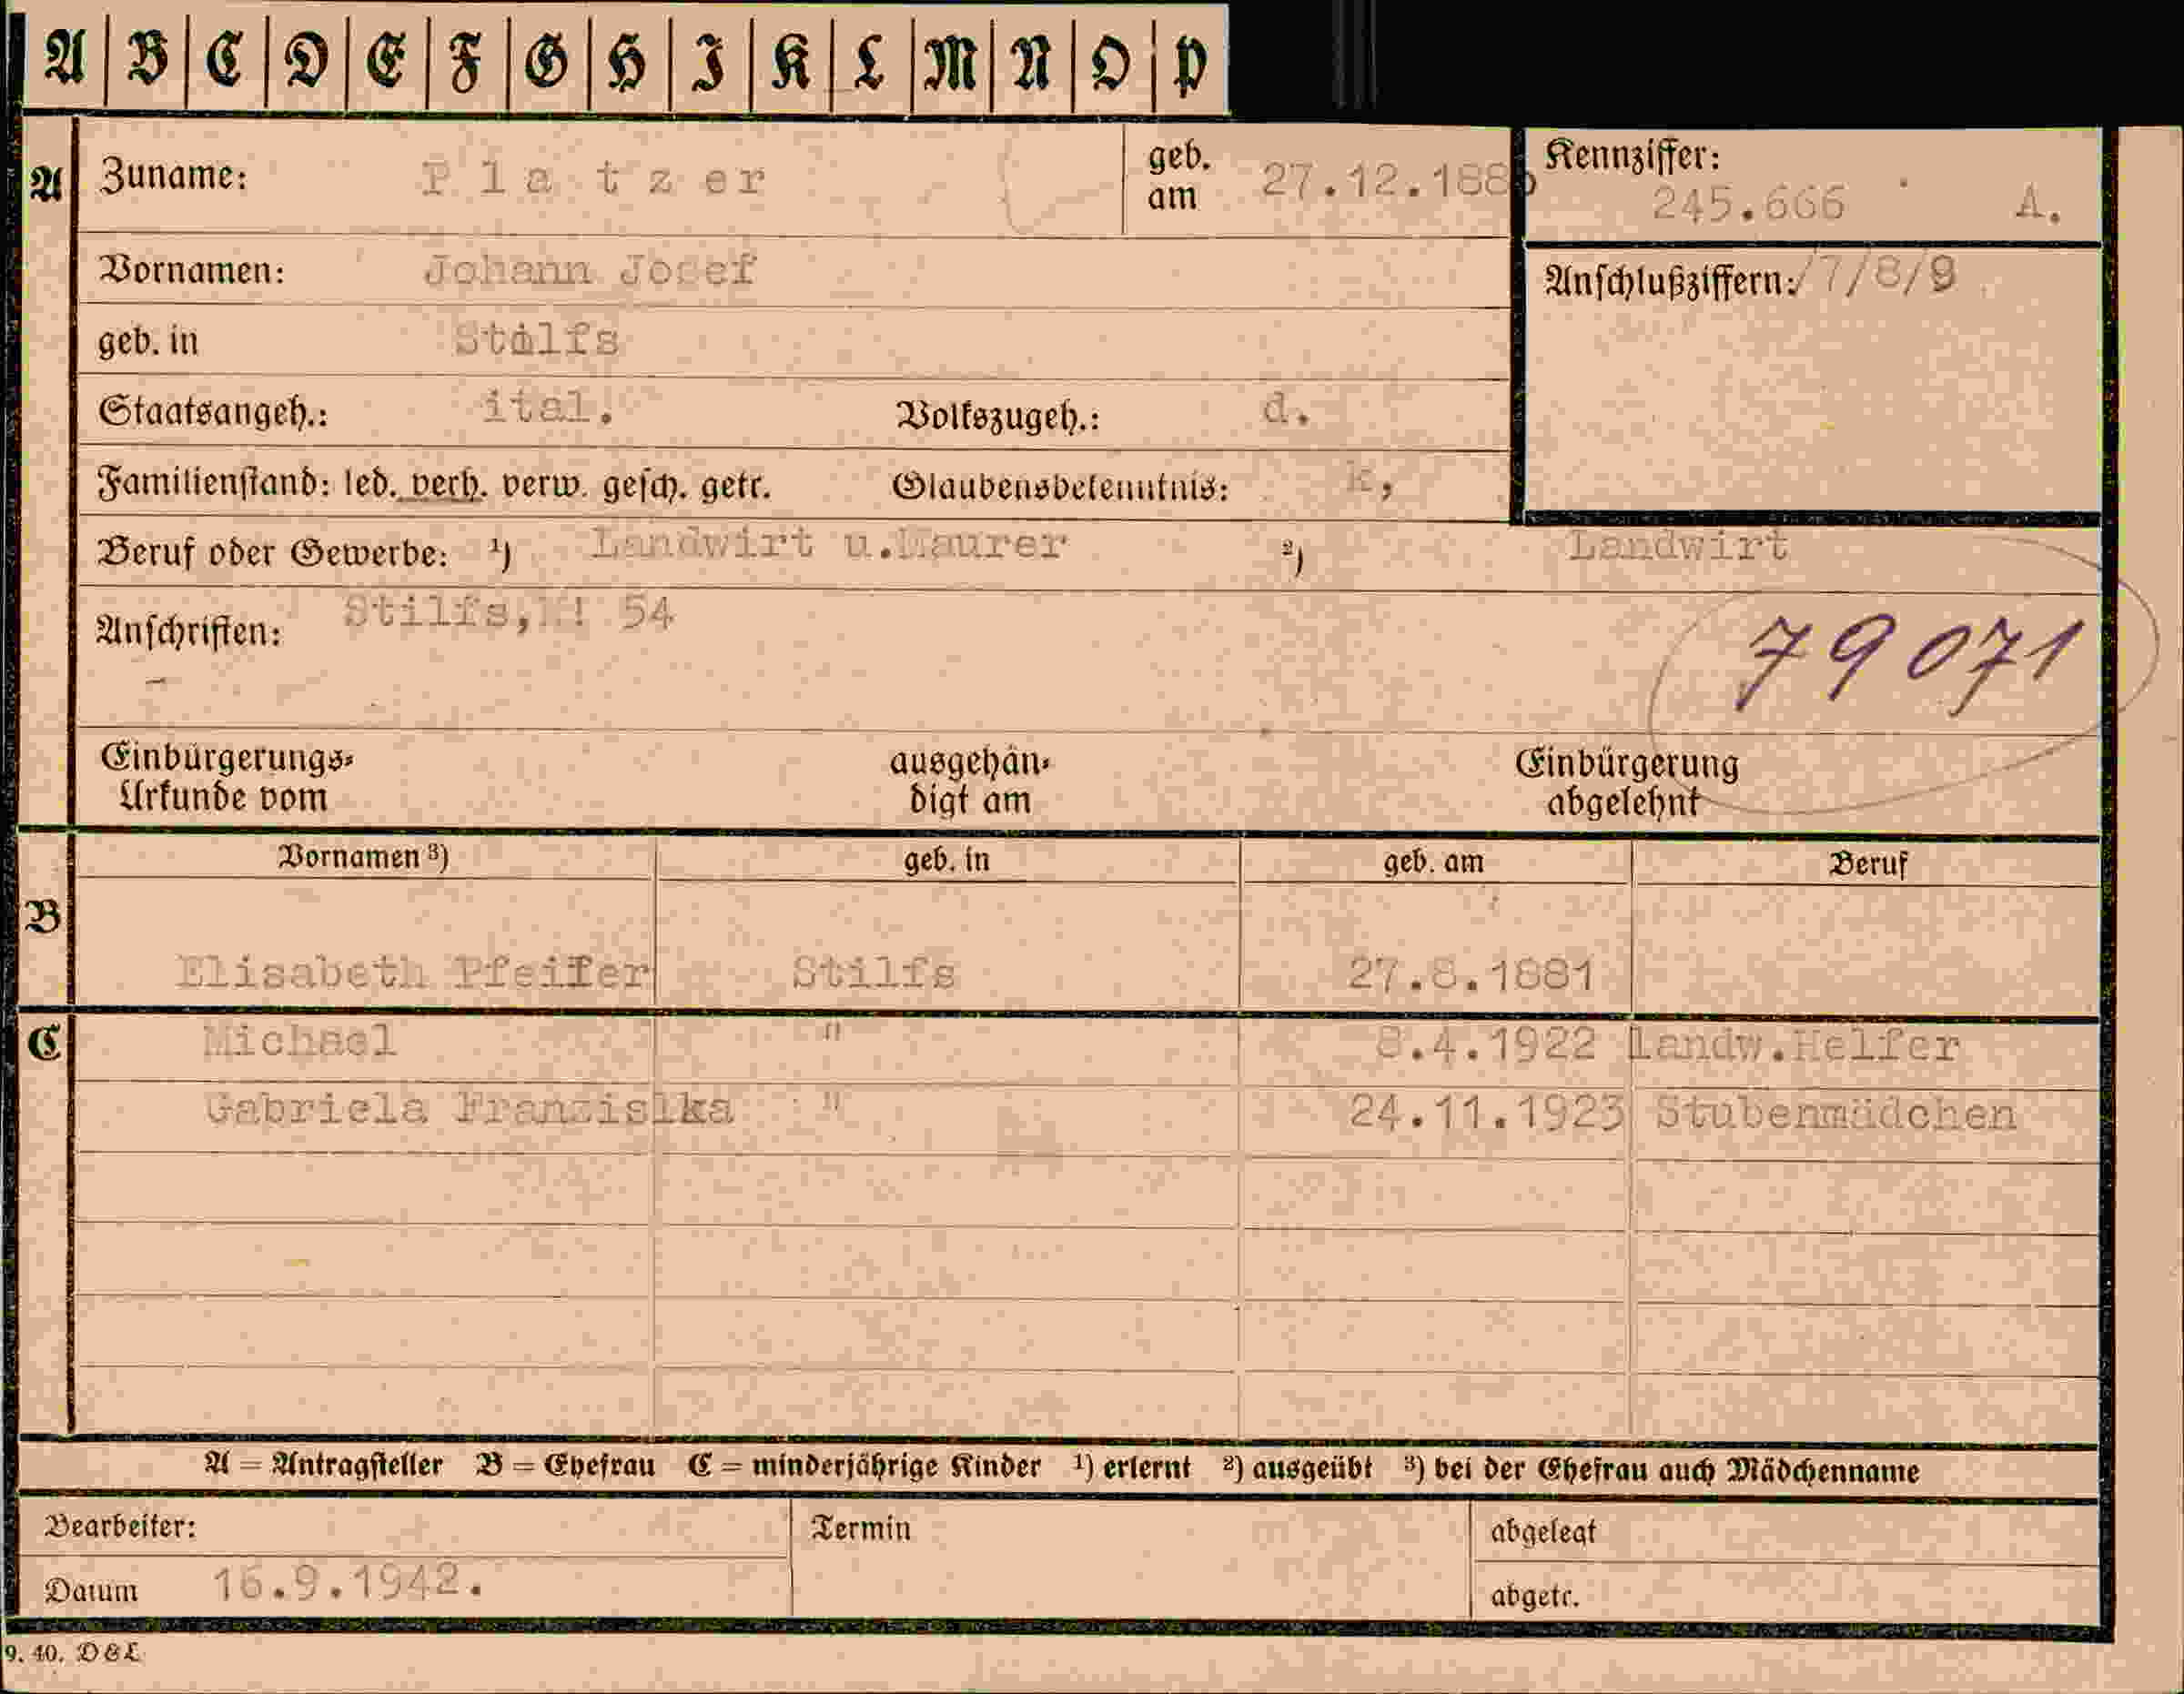 A B C D E F G H I K L M N O P
A Zuname: Platzer geb. am 27.12.1886 Kennziffer: 245.666 A.
Vornamen: Johann Josef Anschlußziffern:/7/8/9
geb. in Stilfs
Staatsangeh.: ital. Volkszugeh.: d.
Familienstand: led. verh. verw. gesch. getr. Glaubensbekenntnis: k,
Beruf oder Gewerbe: ¹) Landwirt u.Maurer ²) Landwirt
Anschriften: Stilfs, N! 54
79071
Einbürgerungs-Urkunde vom ausgehändigt am Einbürgerung abgelehnt
Vornamen ³) geb. in geb. am Beruf
B
Elisabeth Pfeifer Stilfs 27.8.1881
C Michael " 8.4.1922 Landw.Helfer
Gabriela Franziska " 24.11.1923 Stubenmädchen
A = Antragsteller B = Ehefrau C = minderjährige Kinder ¹) erlernt ²) ausgeübt ³) bei der Ehefrau auch Mädchenname
Bearbeiter: Termin abgelegt
Datum 16.9.1942. abgetr.
9. 40. D&L